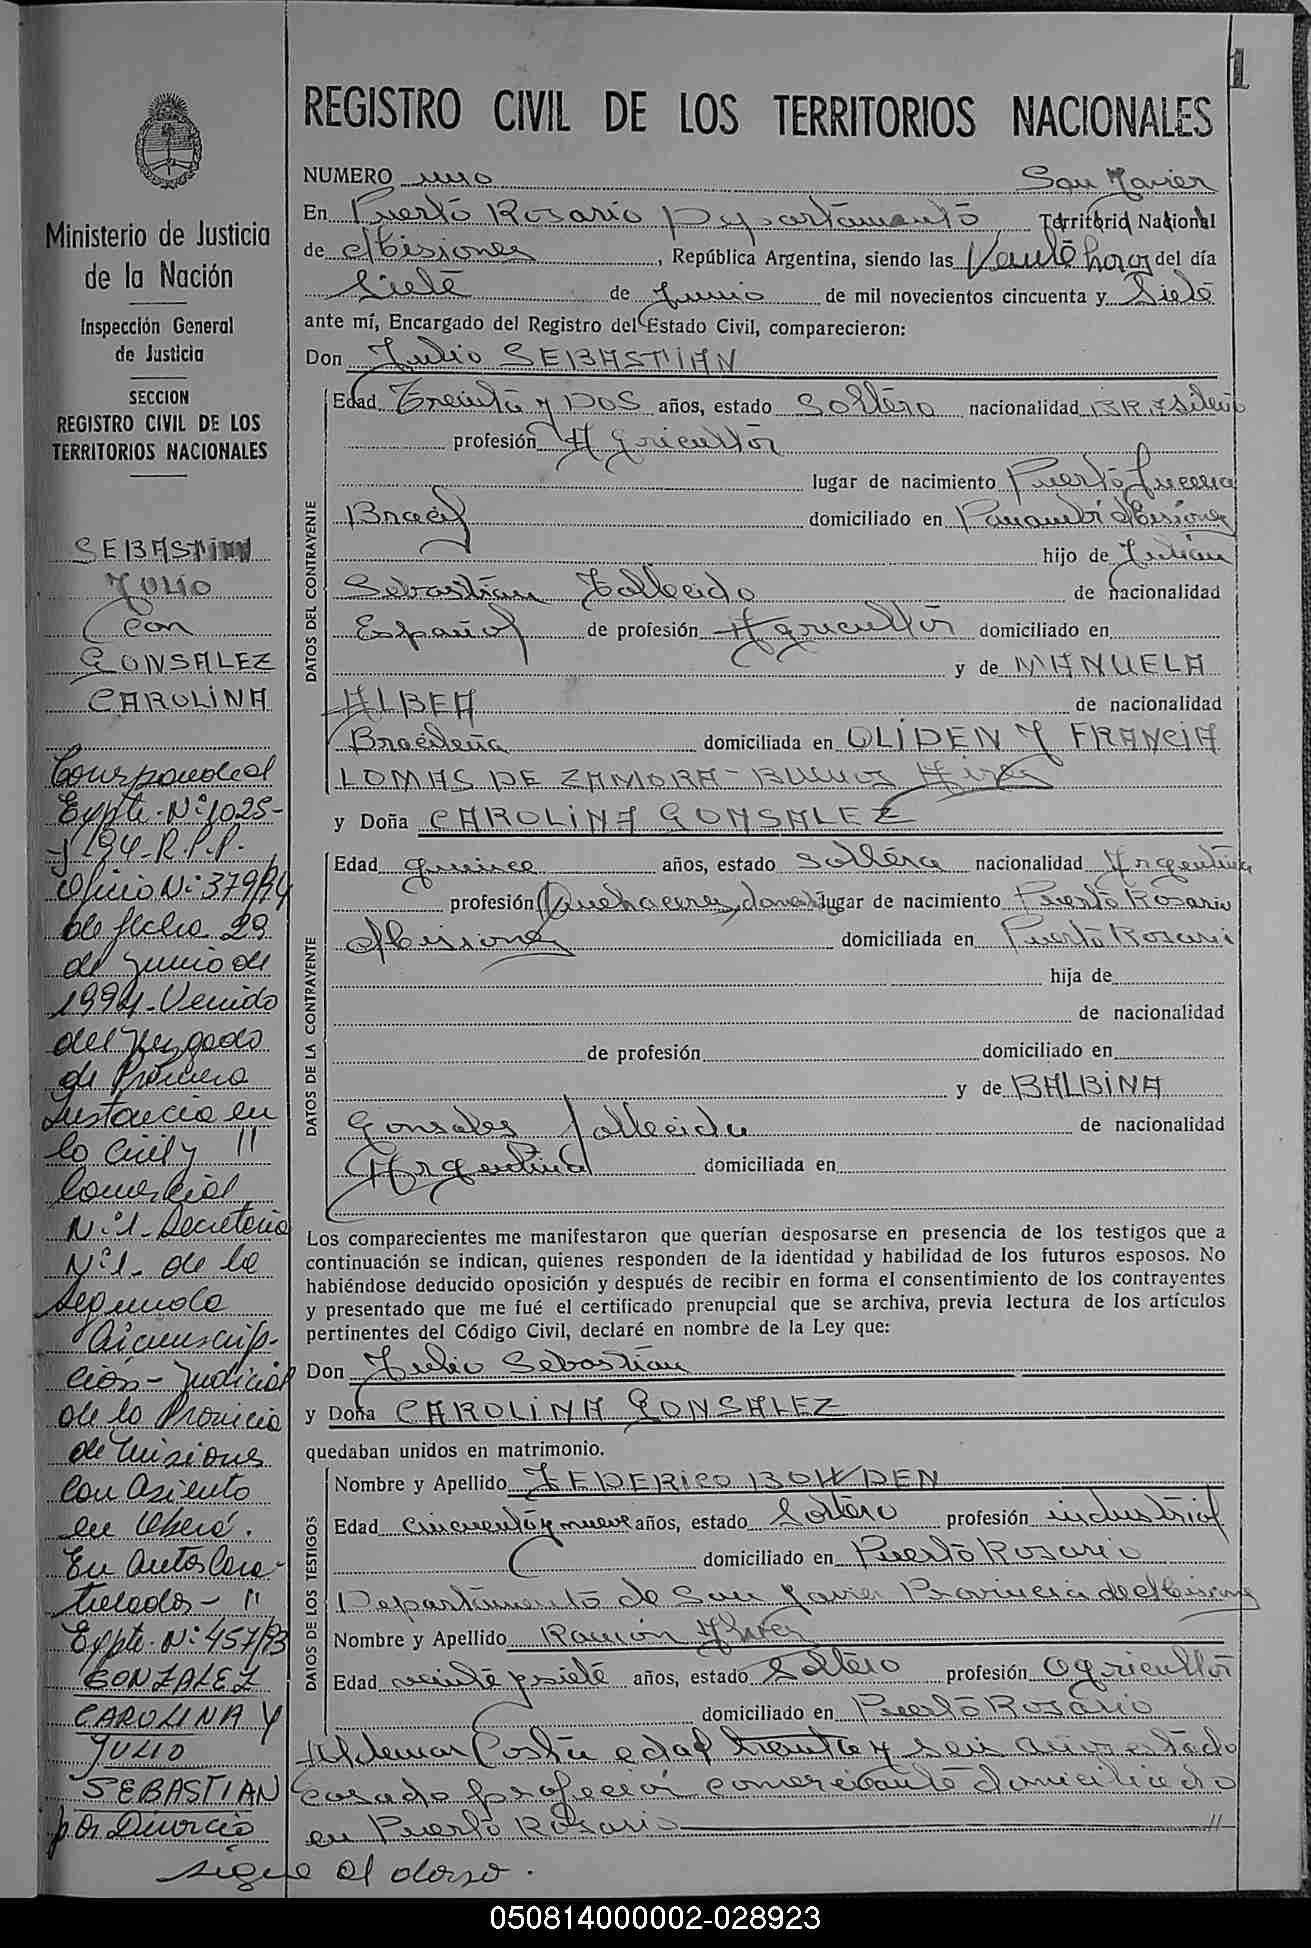 1
REGISTRO CIVIL DE LOS TERRITORIOS NACIONALES
NUMERO uno San Javier
En Puerto Rosario Departamento Territorio Nacional
de Misiones, República Argentina, siendo las Veinte horas del día
Siete de Junio de mil novecientos cincuenta y Siete
ante mí, Encargado del Registro del Estado Civil, comparecieron:
Don Julio SEBASTIAN
DATOS DEL CONTRAYENTE
Edad Treinta y DOS años, estado Soltero nacionalidad BRasileño
profesión Agricultor
lugar de nacimiento Puerto Lucena
Bracil domiciliado en Panambi Misiones
hijo de Julian
Sebastian Fallecido de nacionalidad
Español de profesión Agricultor domiciliado en
y de MANUELA
ALBEA de nacionalidad
Bracileña domiciliada en OLIDEN Y FRANCIA
LOMAS DE ZAMORA - Buenos Aires
y Doña CAROLINA GONSALEZ
DATOS DE LA CONTRAYENTE
Edad quince años, estado Soltera nacionalidad Argentina
profesión Quehaceres domes lugar de nacimiento Puerto Rosario
Misiones domiciliada en Puerto Rosario
hija de
de nacionalidad
de profesión domiciliado en
y de BALBINA
Gonsales fallecida de nacionalidad
Argentina domiciliada en
Los comparecientes me manifestaron que querían desposarse en presencia de los testigos que a
continuación se indican, quienes responden de la identidad y habilidad de los futuros esposos. No
habiéndose deducido oposición y después de recibir en forma el consentimiento de los contrayentes
y presentado que me fué el certificado prenupcial que se archiva, previa lectura de los artículos
pertinentes del Código Civil, declaré en nombre de la Ley que:
Don Julio Sebastian
y Doña CAROLINA GONSALEZ
quedaban unidos en matrimonio.
DATOS DE LOS TESTIGOS
Nombre y Apellido FEDERICO BOWDEN
Edad cincuenta y nueve años, estado Soltero profesión industrial
domiciliado en Puerto Rosario
Departamento de San Javier Provincia de Misiones
Nombre y Apellido Ramon
Edad veinte y siete años, estado Soltero profesión agricultor
domiciliado en Puerto Rosario
Aldemar Costa edad treinta y seis años estado
casado profecion comerciante domiciliado
en Puerto Rosario //
Ministerio de Justicia
de la Nación
Inspección General
de Justicia
SECCION
REGISTRO CIVIL DE LOS
TERRITORIOS NACIONALES
SEBASTIAN
JULIO
Con
GONSALEZ
CAROLINA
Corresponde al
Expte. Nº 1025-
J-194-R.P.P.
Oficio Nº 379/94
de fecha 29
de Junio de
1994- Venido
del Juzgado
de Primera
Instancia en
lo Civil y //
Comercial
Nº 1- Secretaria
Nº 1- de la
Segunda
Circunscrip-
ción- Judicial
de la Provincia
de Misiones
con asiento
en Oberá.
En autos Cara-
tulados- //
Expte. Nº 457/93
GONZALEZ
CAROLINA Y
JULIO
SEBASTIAN
por Divorcio
sigue al dorso.
050814000002-028923